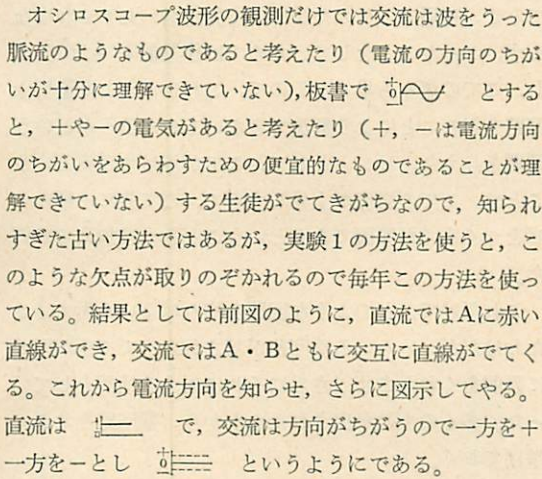 オシロスコープ波形の観測だけでは交流は波をうった
脈流のようなものであると考えたり（電流の方向のちが
いが十分に理解できていない），板書で ＋0 とする
と，＋や－の電気があると考えたり（＋，－は電流方向
のちがいをあらわすための便宜的なものであることが理
解できていない）する生徒がでてきがちなので，知られ
すぎた古い方法ではあるが，実験1の方法を使うと，こ
のような欠点が取りのぞかれるので毎年この方法を使っ
ている。結果としては前図のように，直流ではAに赤い
直線ができ，交流ではA・Bともに交互に直線がでてく
る。これから電流方向を知らせ，さらに図示してやる。
直流は で，交流は方向がちがうので一方を＋
一方を－とし ＋0 というようにである。